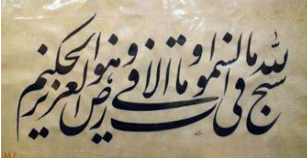 سبح لله ما فى السموات و ما فى الارض و هو العزيز الحكيم